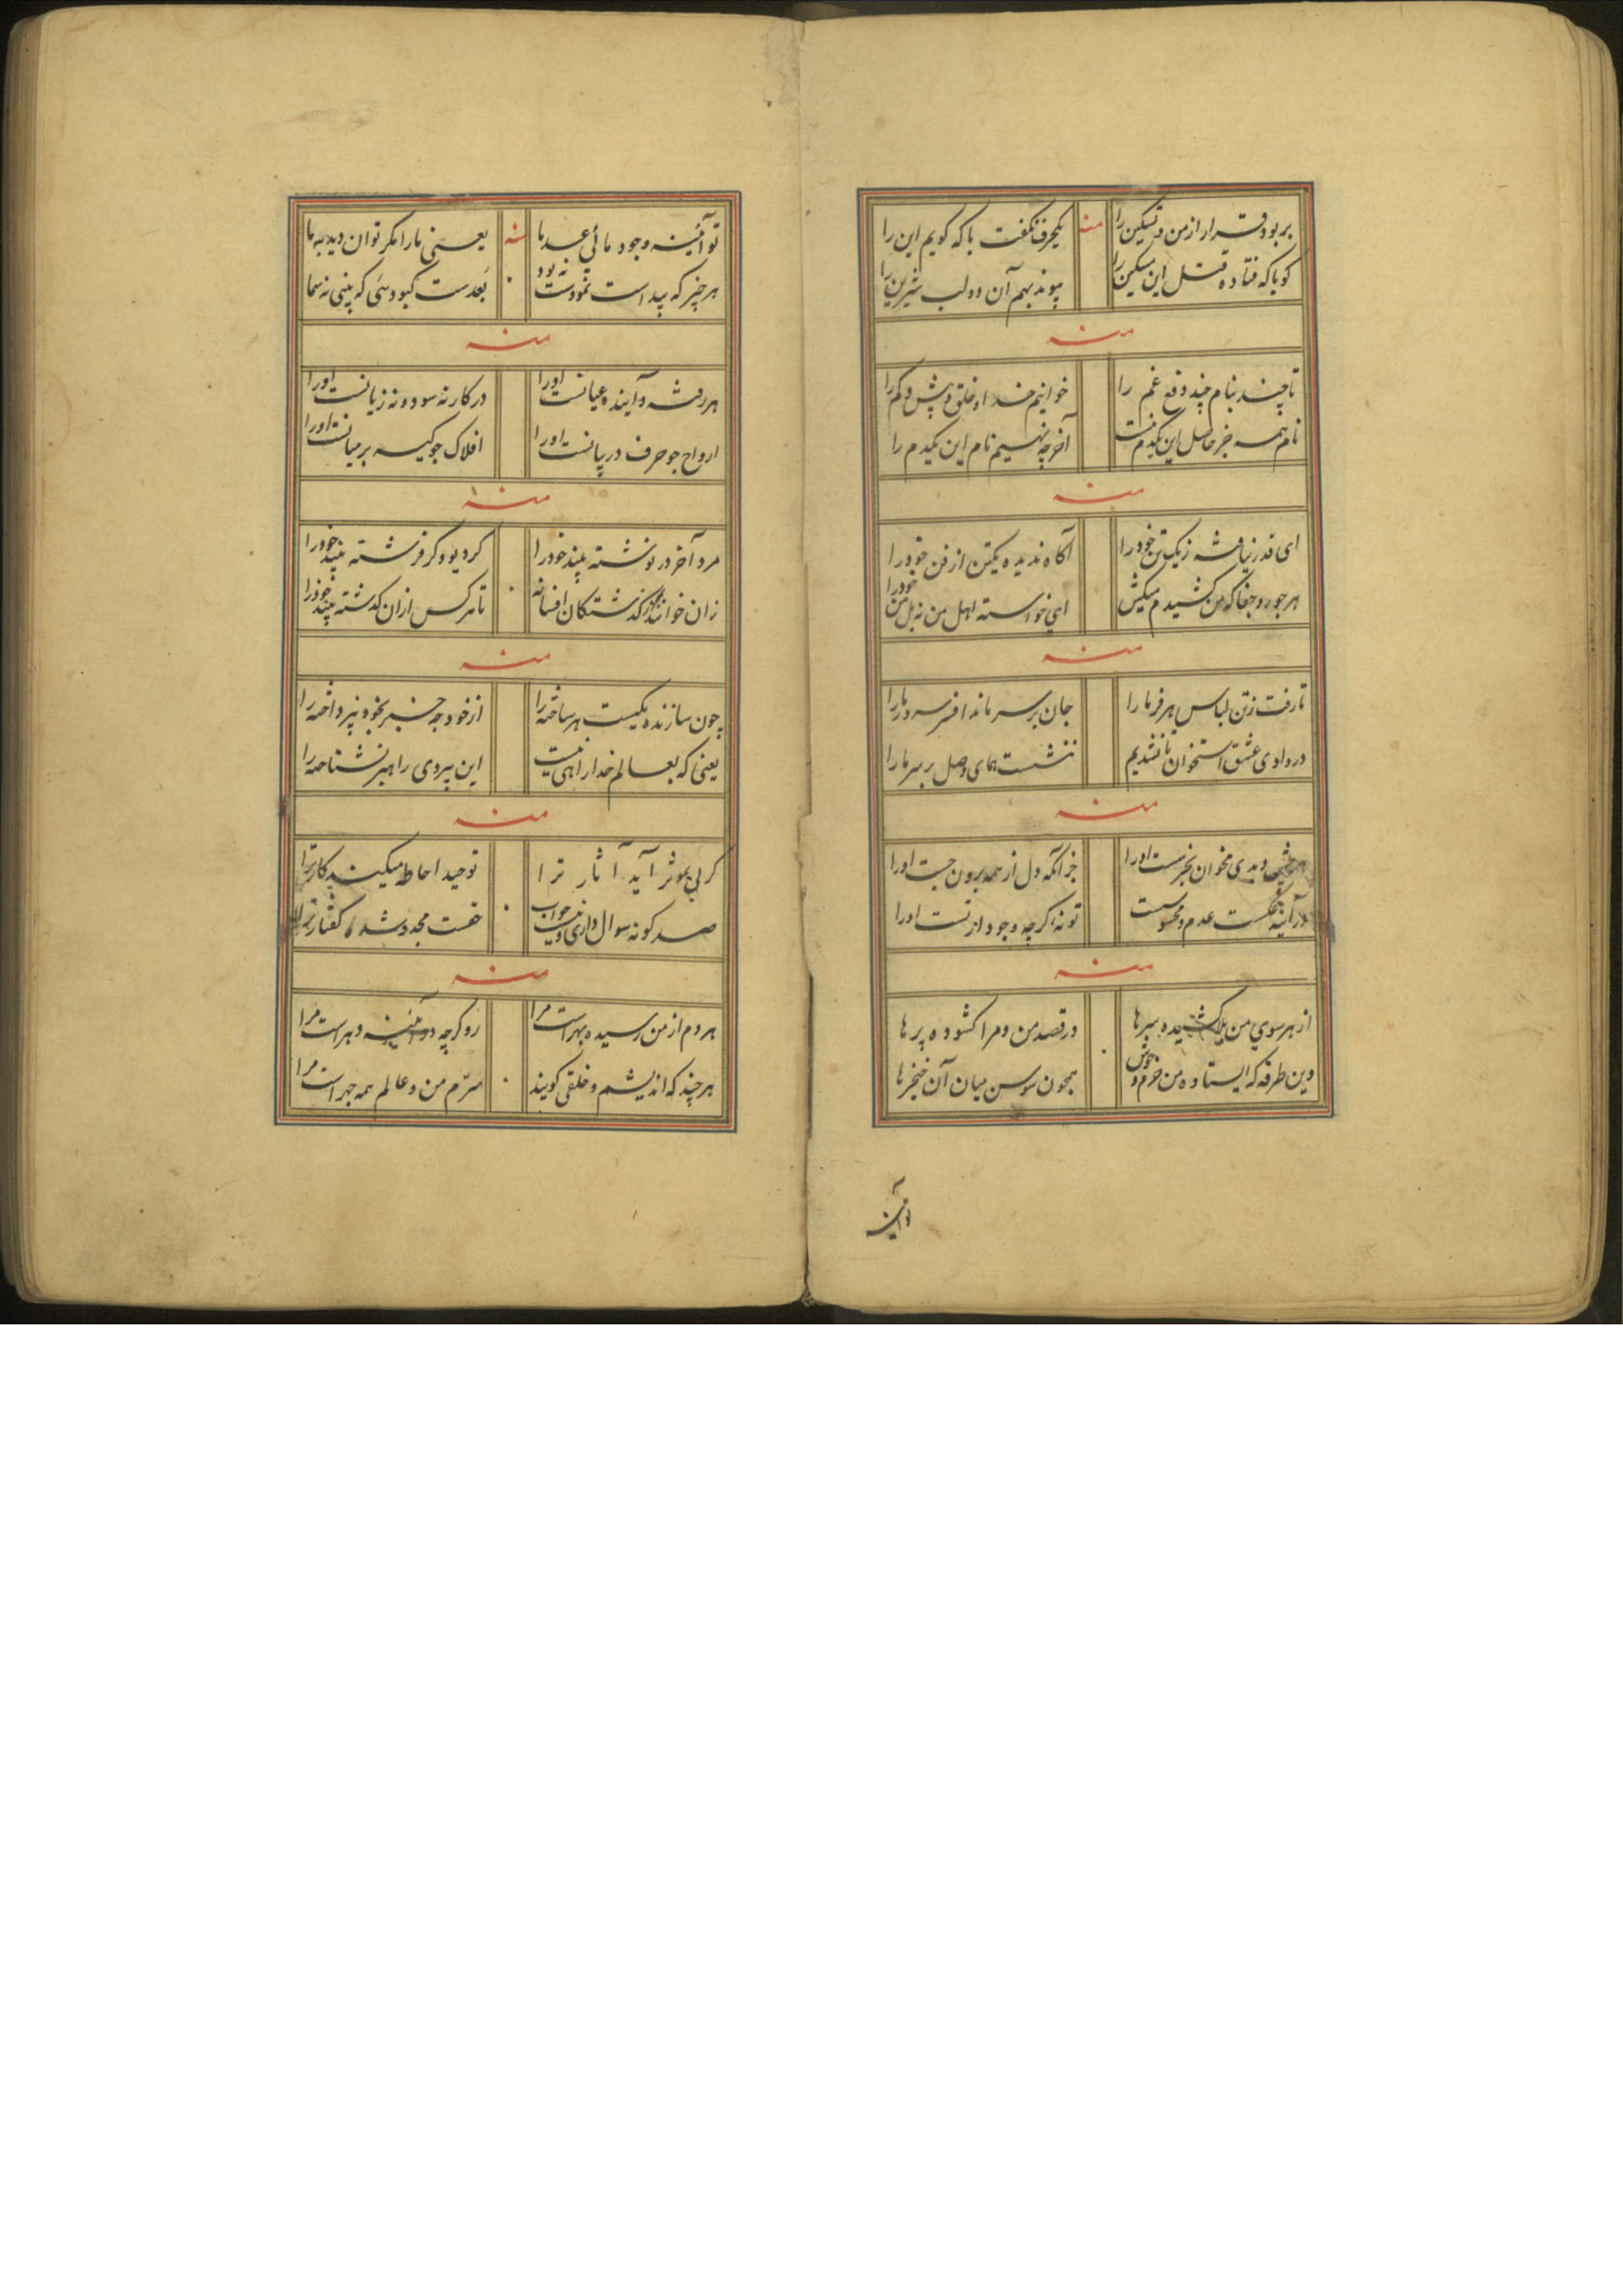 بربود قرار از من و تسکین را
منه
یکحرف نگفت با که گویم این را
کو با که فتاده قتل این مسکین را
پیوند بهم آن دو لب شیرین را
منه
تا چند بنام چند دفع غم را
خوانیم خدا و خلق و بیش و کم را
نام همه جز حاصل این یکدم نیست
آخر چه نهیم نام این یکدم را
منه
ای قدر نیافته ز یک تن خود را
آگاه ندیده یکتن از فن خود را
هر جور و جفا که من کشیدم میکش
ای خواسته اهل من نه بل من خود را
منه
تا رفت ز تن لباس هر فر ما را
جان بر سر ماند افسر سر ما را
در وادی عشق استخوان تا نشدیم
ننشست همای وصل بر سر ما را
منه
دیدی مخوان بجزست او را
جز آنکه دل از همه برون جست او را
در آینه عکست عدم و محسوست
تو نه اگرچه وجود از تست او را
منه
از هر سوی من بلا کشیده سرها
در قصد من و مرا گشوده پرها
وین طرفه که ایستاده من خرم و خوش
همچون سوسن میان آن خنجرها
تو آینه
تو آئینه وجود مائی عدما
منه
یعنی ما را مگر توان دید به ما
هر چیز که پیداست نمودست نه بود
بعدست کبود شی که بینی نه سما
منه
هر رفته و آینده عیانست او را
در کار نه سود و نه زیانست او را
ارواح جو حرف در بیانست او را
افلاک جو کیسه بر میانست او را
منه
مرد آخر در نوشته بیند خود را
کر دیو و کر فرشته بیند خود را
زان خوانند از گذشتگان افسانه
تا هر کس از ان گذشته بیند خود را
منه
چون سازنده یکیست هر ساخته را
از خود چه خبر بخود نپرداخته را
یعنی که بعالم خدا راهی نیست
این پیروی راهبر نشناخته را
منه
کر بی موثر آید آثار ترا
توحید احاطه میکند کار ترا
صد کونه سوال داری و نیست جواب
خفت مجدد شد کفتار ترا
منه
هر دم از من رسیده بهر است مرا
رو کرچه در آئینه دهر است مرا
هر چند که اندیشم و خلقی کویند
سرّم من و عالم همه جهر است مرا